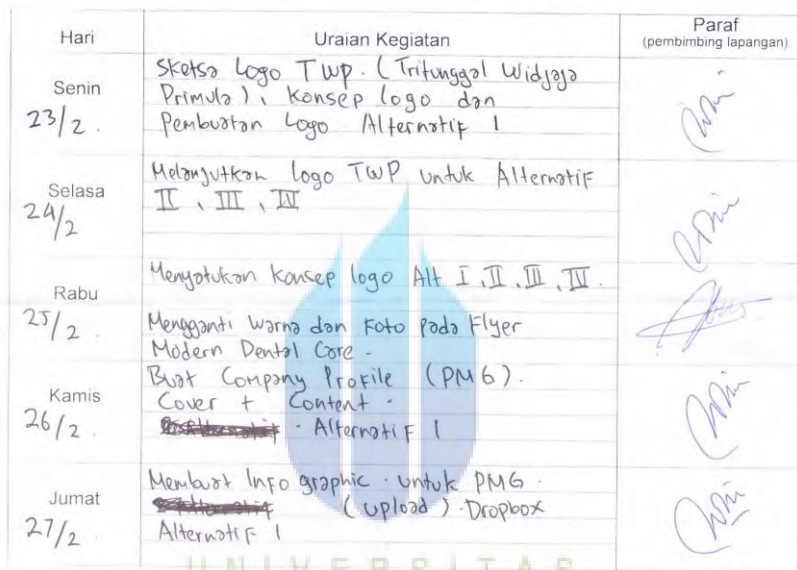 Hari Uraian Kegiatan Paraf
(pembimbing lapangan)
Senin
23/2.
Sketsa Logo TWP. (Tritunggal Widjaja
Primula), Konsep logo dan
Pembuatan Logo Alternatif 1
Selasa
24/2
Melanjutkan logo TWP untuk Alternatif
II, III, IV
Rabu
25/2.
Menyatukan konsep logo Alt I, II, III, IV.
Mengganti warna dan Foto pada Flyer
Modern Dental Care.
Kamis
26/2.
Buat Company Profile (PMG).
Cover + Content -
- Alternatif 1
Jumat
27/2
Membuat Info graphic. untuk PMG.
(upload). Dropbox
Alternatif 1
UNIVERSITAS